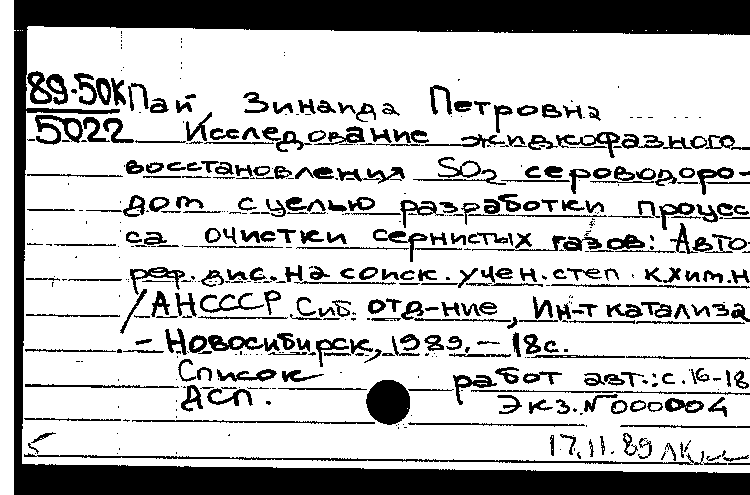 89-50К Пай, Зинаида Петровна
5022 Исследование жидкофазного
восстановления SO₂ сероводоро-
дом с целью разработки процес
са очистки сернистых газов: Авто
реф. дис. на соиск. учен. степ. к.хим.н
/АНСССР Сиб. отд-ние, Ин-т катализа
- Новосибирск, 1989. - 18с.
Список работ авт.: с. 16-18
ДСП. Экз. N 000004
17.11.89